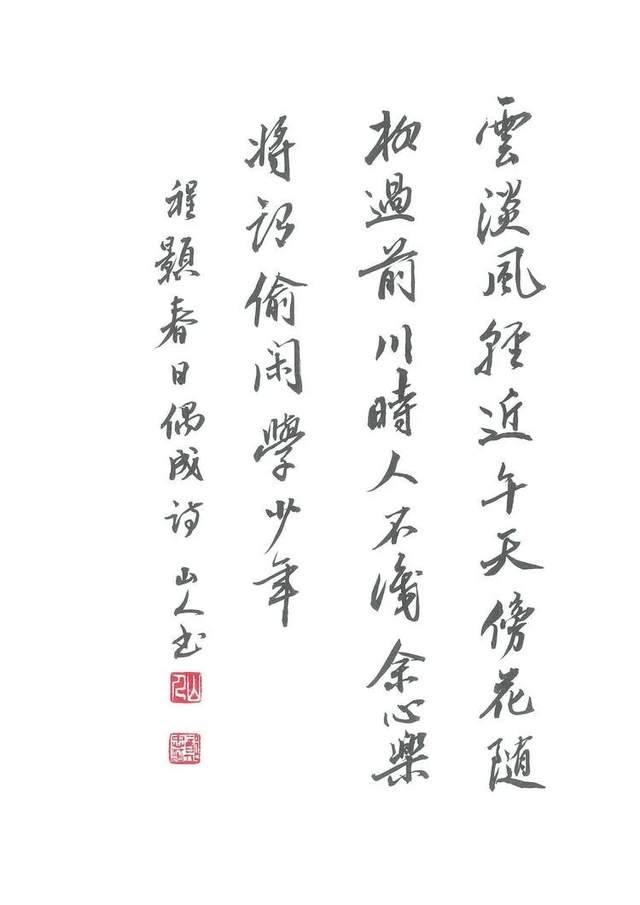 雲淡風輕近午天傍花隨
柳過前川時人不識余心樂
將謂偷闲學少年
程顥春日偶成詩 山人书
山人